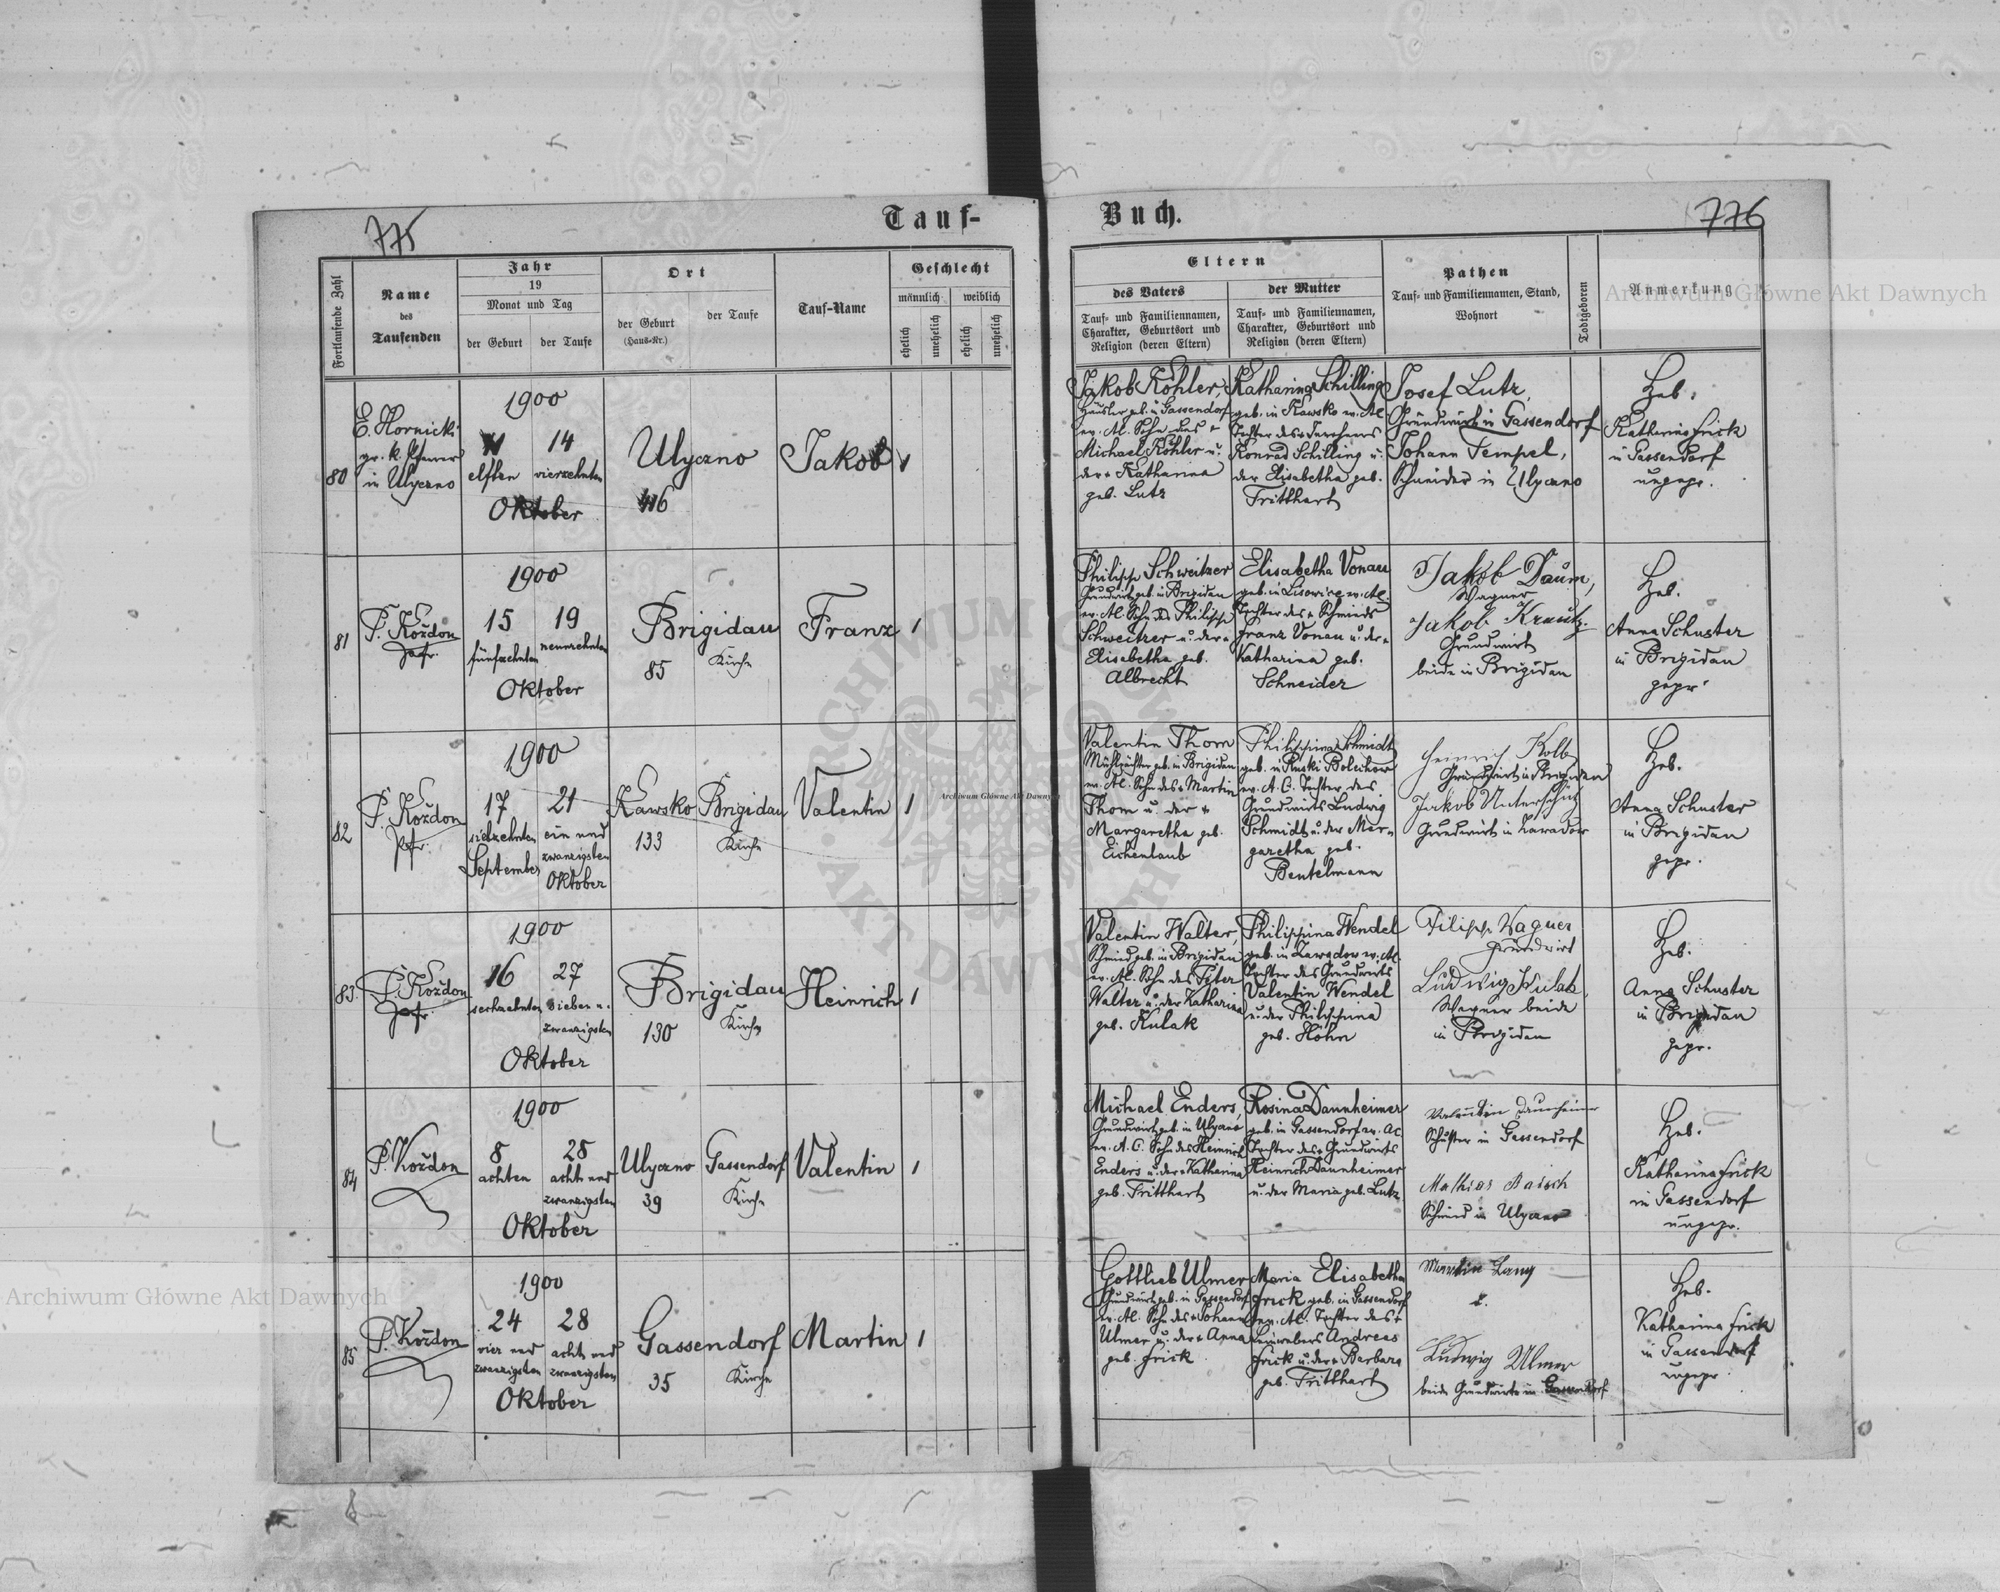 775
Tauf-
Buch.
776
Fortlaufende Zahl
Name
des
Taufenden
Jahr
19
Monat und Tag
der Geburt
der Taufe
Ort
der Geburt
(Haus-Nr.)
der Taufe
Tauf-Name
Geschlecht
männlich
weiblich
ehelich
unehelich
ehelich
unehelich
Eltern
des Vaters
Tauf- und Familiennamen,
Charakter, Geburtsort und
Religion (deren Eltern)
der Mutter
Tauf- und Familiennamen,
Charakter, Geburtsort und
Religion (deren Eltern)
Pathen
Tauf- und Familiennamen, Stand,
Wohnort
Todtgeboren
Anmerkung
80
E. Hornicki
gr. k. Pfarrer
in Ulyczno
1900
11 14
elften vierzehnten
Oktober
Ulyczno
416
Jakob
1
Jakob Köhler,
Häusler geb. in Gassendorf
ev. A.C. Sohn des +
Michael Köhler u.
der + Katharina
geb. Lutz
Katharina Schilling
geb. in Kawsko ev. A.C.
Konrad Schilling u.
der Elisabetha geb.
Fritthart
Josef Lutz,
Grundwirt in Gassendorf
Johann Tempel,
Schneider in Ulyczno
Heb.
Katharina Frick
in Gassendorf
ungepr.
81
P. Kożdon
Pfr.
1900
15 19
fünfzehnten neunzehnten
Oktober
Brigidau
85
Kirche
Franz
1
Philipp Schweitzer
Grundwirt geb. in Brigidau
ev. A.C. Sohn des Philipp
Schweitzer u. der +
Elisabetha geb.
Albrecht
Elisabetha Vonau
geb. in Lisowice ev. A.C.
Tochter des + Schmieds
Franz Vonau u. der +
Katharina geb.
Schneider
Jakob Daum,
Wagner
Jakob Krautz.
Grundwirt
beide in Brigidau
Heb.
Anna Schuster
in Brigidau
gepr.
82
P. Kożdon
Pfr.
1900
17 21
siebzehnten ein und
zwanzigsten
September Oktober
Kawsko
133
Brigidau
Kirche
Valentin
1
Valentin Thom
Mühlpächter geb. in Brigidau
ev. A.C. Sohn des + Martin
Thom u. der +
Margaretha geb.
Eichenlaub
Philippina Schmidt
geb. in Ruski Bolechow
ev. A.C. Tochter des
Grundwirts Ludwig
Schmidt u. der Mar-
garetha geb.
Beutelmann
Heinrich Kolb
Grundwirt in Brigidau
Jakob Unterschütz
Grundwirt in Zawadow
Heb.
Anna Schuster
in Brigidau
gepr.
83.
P. Kożdon
Pfr.
1900
16 27
sechzehnten sieben u.
zwanzigsten
Oktober
Brigidau
130
Kirche
Heinrich
1
Valentin Walter,
Schmied geb. in Brigidau
ev. A.C. Sohn des Peter
Walter u. der Katharina
geb. Kulak
Philippina Wendel
geb. in Zawadow ev. A.C.
Tochter des Grundwirts
Valentin Wendel
u. der Philippina
geb. Höhn
Filipp Wagner
Grundwirt
Ludwig Kulak,
Wagner beide
in Brigidau
Heb.
Anna Schuster
in Brigidau
gepr.
84
P. Kożdon
1900
8 28
achten acht und
zwanzigsten
Oktober
Ulyczno
39
Gassendorf
Kirche
Valentin
1
Michael Enders,
Grundwirt geb. in Ulyczno
ev. A.C. Sohn des Heinrich
Enders u. der + Katharina
geb. Fritthart
Rosina Dannheimer
geb. in Gassendorf ev. A.C.
Tochter des + Grundwirts
Heinrich Dannheimer
u. der Maria geb. Lutz
Valentin Dannheimer
Schuster in Gassendorf
Mathias Baisch
Schmied in Ulyczno
Heb.
Katharina Frick
in Gassendorf
ungepr.
85
P. Kożdon
1900
24 28
vier und acht und
zwanzigsten zwanzigsten
Oktober
Gassendorf
35
Kirche
Martin
1
Gottlieb Ulmer
Grundwirt geb. in Gassendorf
ev. A.C. Sohn des + Johann
Ulmer u. der + Anna
geb. Frick
Maria Elisabetha
Frick geb. in Gassendorf
ev. A.C. Tochter des +
Leinwebers Andreas
Frick u. der + Barbara
geb. Fritthart
Martin Lang
Ludwig Ulmer
beide Grundwirte in Gassendorf
Heb.
Katharina Frick
in Gassendorf
ungepr.
Archiwum Główne Akt Dawnych
Archiwum Główne Akt Dawnych
Archiwum Główne Akt Dawnych